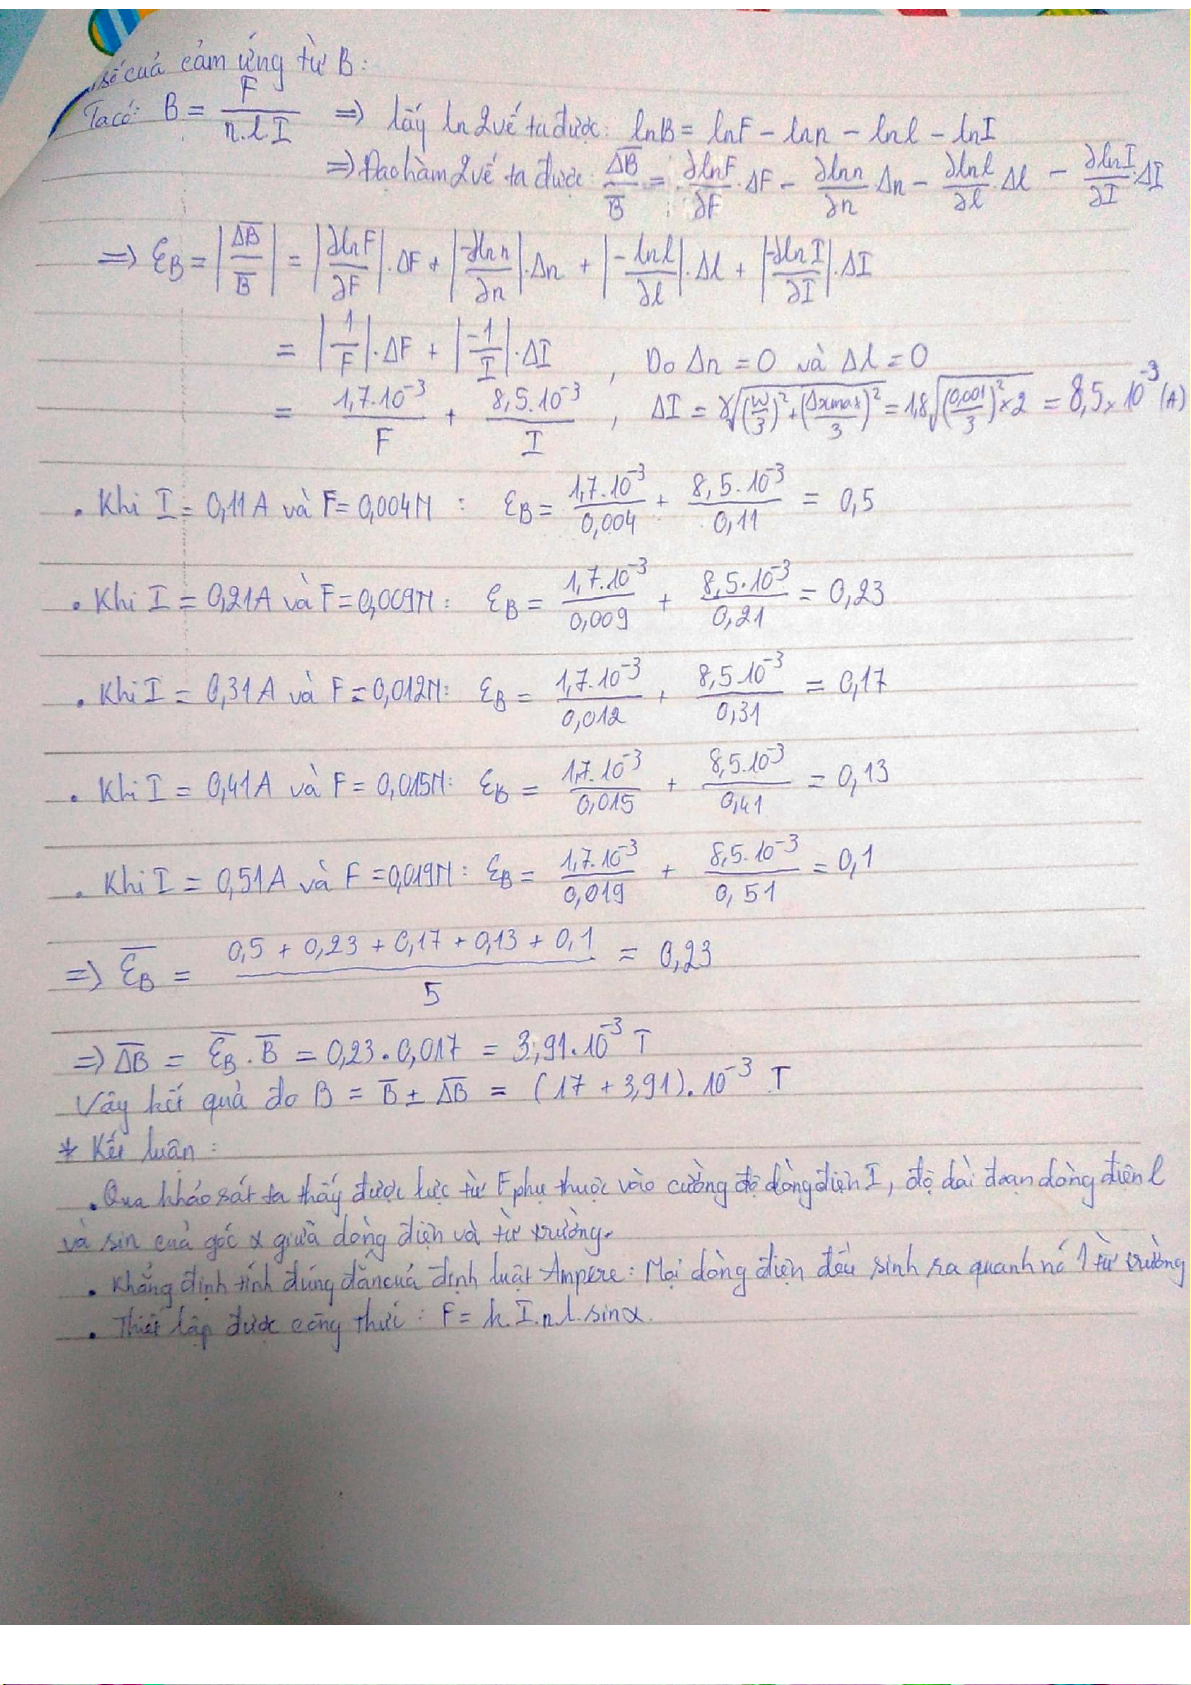 số của cảm ứng từ B:
Ta có: B = F/(n.l I) => lấy ln 2 vế ta được: lnB = lnF - lnn - lnl - lnI
=> Đạo hàm 2 vế ta được: ΔB̅/B̅ = ∂lnF/∂F .ΔF - ∂lnn/∂n Δn - ∂lnl/∂l .Δl - ∂lnI/∂I .ΔI
=> ξB = |ΔB̅/B̅| = |∂lnF/∂F|.ΔF + |-∂lnn/∂n|.Δn + |-lnl/∂l|.Δl + |-∂lnI/∂I|.ΔI
= |1/F|.ΔF + |-1/I|.ΔI , Do Δn = 0 và Δl = 0
= 1,7.10⁻³/F + 8,5.10⁻³/I , ΔI = γ√((w/3)² + (Δxmax/3)²) = 1,8√((0,001/3)² × 2) = 8,5 × 10⁻³ (A)
. Khi I = 0,11A và F = 0,004N : ξB = 1,7.10⁻³/0,004 + 8,5.10⁻³/0,11 = 0,5
. Khi I = 0,21A và F = 0,009N : ξB = 1,7.10⁻³/0,009 + 8,5.10⁻³/0,21 = 0,23
. Khi I = 0,31A và F = 0,012N: ξB = 1,7.10⁻³/0,012 + 8,5.10⁻³/0,31 = 0,17
. Khi I = 0,41A và F = 0,015N: ξB = 1,7.10⁻³/0,015 + 8,5.10⁻³/0,41 = 0,13
. Khi I = 0,51A và F = 0,019N : ξB = 1,7.10⁻³/0,019 + 8,5.10⁻³/0,51 = 0,1
=> ξ̅B = (0,5 + 0,23 + 0,17 + 0,13 + 0,1)/5 = 0,23
=> ΔB̅ = ξ̅B . B̅ = 0,23 . 0,017 = 3,91.10⁻³ T
Vậy kết quả đo B = B̅ ± ΔB̅ = (17 + 3,91).10⁻³ T
* Kết luận :
. Qua khảo sát ta thấy được lực từ F phụ thuộc vào cường độ dòng điện I, độ dài đoạn dòng điện l
và sin của góc α giữa dòng điện và từ trường.
. Khẳng định tính đúng đắn của định luật Ampere: Mọi dòng điện đều sinh ra quanh nó 1 từ trường
. Thiết lập được công thức : F = k.I.n.l.sinα.